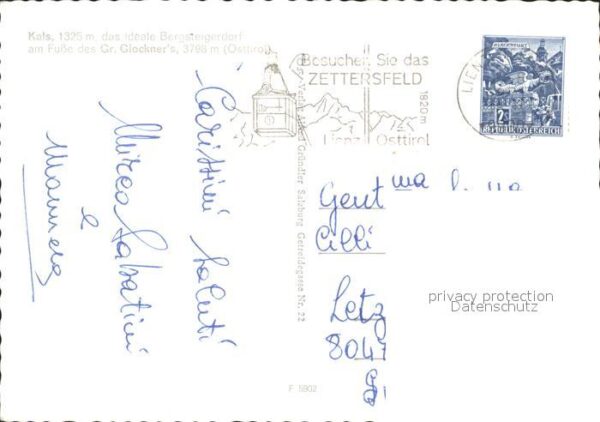 Kals, 1325 m, das ideale Bergsteigerdorf
am Fuße des Gr. Glockner's, 3798 m (Osttirol)
Besuchen Sie das
ZETTERSFELD
1820m
Lienz Osttirol
LIENZ
KLAGENFURT
2S
REPUBLIK ÖSTERREICH
Carissimi saluti
Mirco Sabatini
e
Gründler Salzburg Getreidegasse Nr. 22
Gent ma
Cilli
Letz
8047
privacy protection
Datenschutz
F 5902